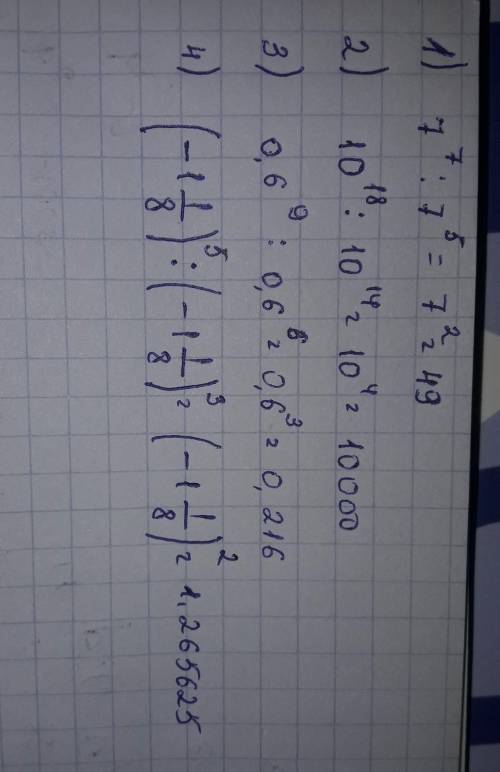 1) 7⁷ : 7⁵ = 7² = 49
2) 10¹⁸ : 10¹⁴ = 10⁴ = 10000
3) 0,6⁹ : 0,6⁶ = 0,6³ = 0,216
4) (-1 1/8)⁵ : (-1 1/8)³ = (-1 1/8)² = 1,265625